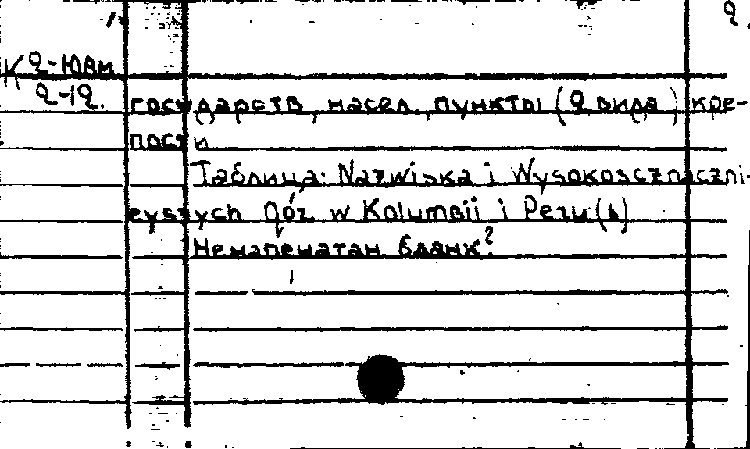 2.
К 2-ЮАм
2-12.
государств, насел. пункты (2 вида) кре-
пости
Таблица: Nazwiska i Wysokoscznaczni-
eyszych gór w Kolumbii i Peru (
Ненапечатан бланк?